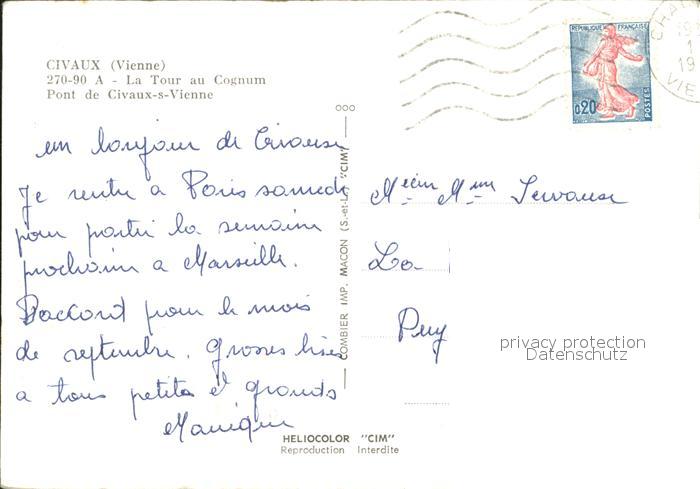 CIVAUX (Vienne)
270-90 A - La Tour au Cognum
Pont de Civaux-s-Vienne
REPUBLIQUE FRANÇAISE
0,20
POSTES
un bonjour de
Je rentre à Paris samedi
pour partir la semaine
prochaine a Marseille.
D'accord pour le mois
de septembre. Grosses bises
a tous petits et grands
Monique
COMBIER IMP. MACON (S.-et-L.) "CIM"
Mme
La
Puy
privacy protection
Datenschutz
HELIOCOLOR "CIM"
Reproduction Interdite